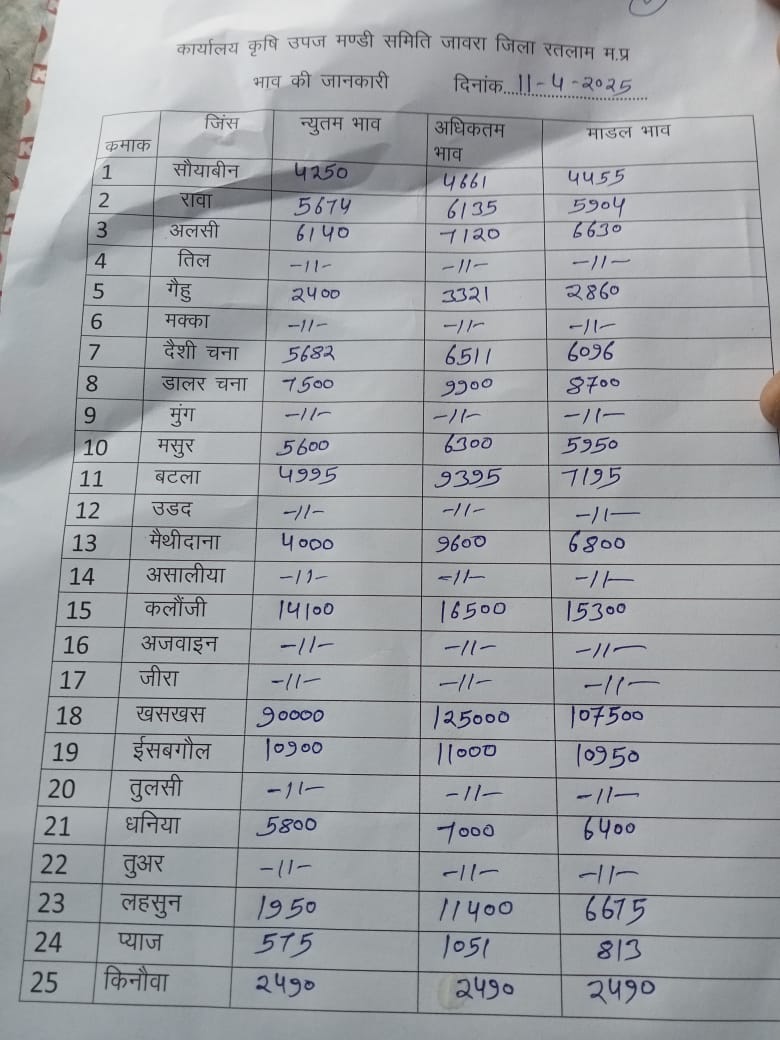 कार्यालय कृषि उपज मण्डी समिति जावरा जिला रतलाम म.प्र
भाव की जानकारी दिनांक...11-4-2025
कमाक जिंस न्युतम भाव अधिकतम भाव माडल भाव
1 सौयाबीन 4250 4661 4455
2 रावा 5674 6135 5904
3 अलसी 6140 7120 6630
4 तिल -11- -11- -11-
5 गैहु 2400 3321 2860
6 मक्का -11- -11- -11-
7 दैशी चना 5682 6511 6096
8 डालर चना 7500 9900 8700
9 मुंग -11- -11- -11-
10 मसुर 5600 6300 5950
11 बटला 4995 9395 7195
12 उडद -11- -11- -11-
13 मैथीदाना 4000 9600 6800
14 असालीया -11- -11- -11-
15 कलौंजी 14100 16500 15300
16 अजवाइन -11- -11- -11-
17 जीरा -11- -11- -11-
18 खसखस 90000 125000 107500
19 ईसबगौल 10900 11000 10950
20 तुलसी -11- -11- -11-
21 धनिया 5800 7000 6400
22 तुअर -11- -11- -11-
23 लहसुन 1950 11400 6675
24 प्याज 575 1051 813
25 किनौवा 2490 2490 2490